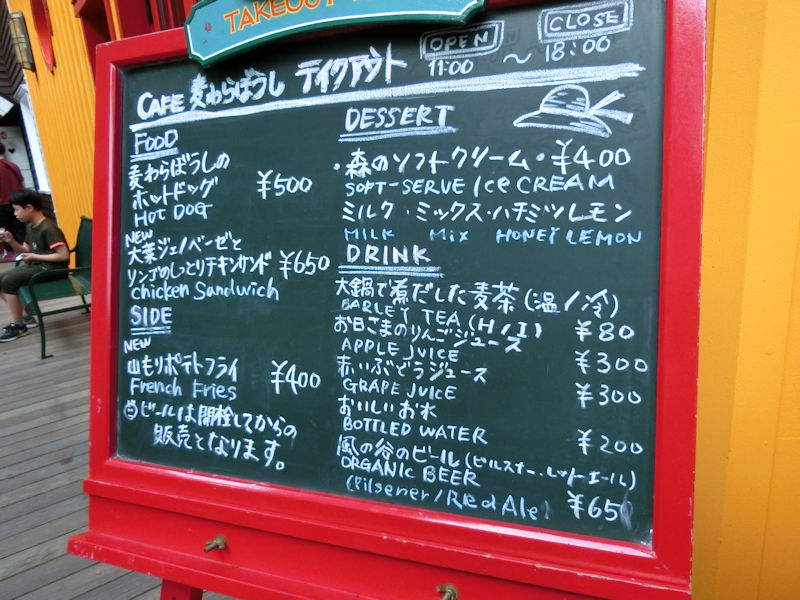 TAKEOUT
OPEN CLOSE
11:00 ～ 18:00
CAFE 麦わらぼうし テイクアウト
FOOD
麦わらぼうしの
ホットドッグ ¥500
HOT DOG
NEW
大葉ジェノベーゼと
リンゴのしっとりチキンサンド ¥650
Chicken Sandwich
SIDE
NEW
山もりポテトフライ ¥400
French Fries
ビールは開栓してからの
販売となります。
DESSERT
・森のソフトクリーム・¥400
SOFT-SERVE ICE CREAM
ミルク・ミックス・ハチミツレモン
MILK MIX HONEY LEMON
DRINK
大鍋で煮だした麦茶(温/冷)
BARLEY TEA (H/I) ¥80
お日さまのりんごジュース
APPLE JUICE ¥300
赤いぶどうジュース
GRAPE JUICE ¥300
おいしいお水
BOTTLED WATER ¥200
風の谷のビール(ピルスナー、レッドエール)
ORGANIC BEER
(Pilsener/Red Ale) ¥650